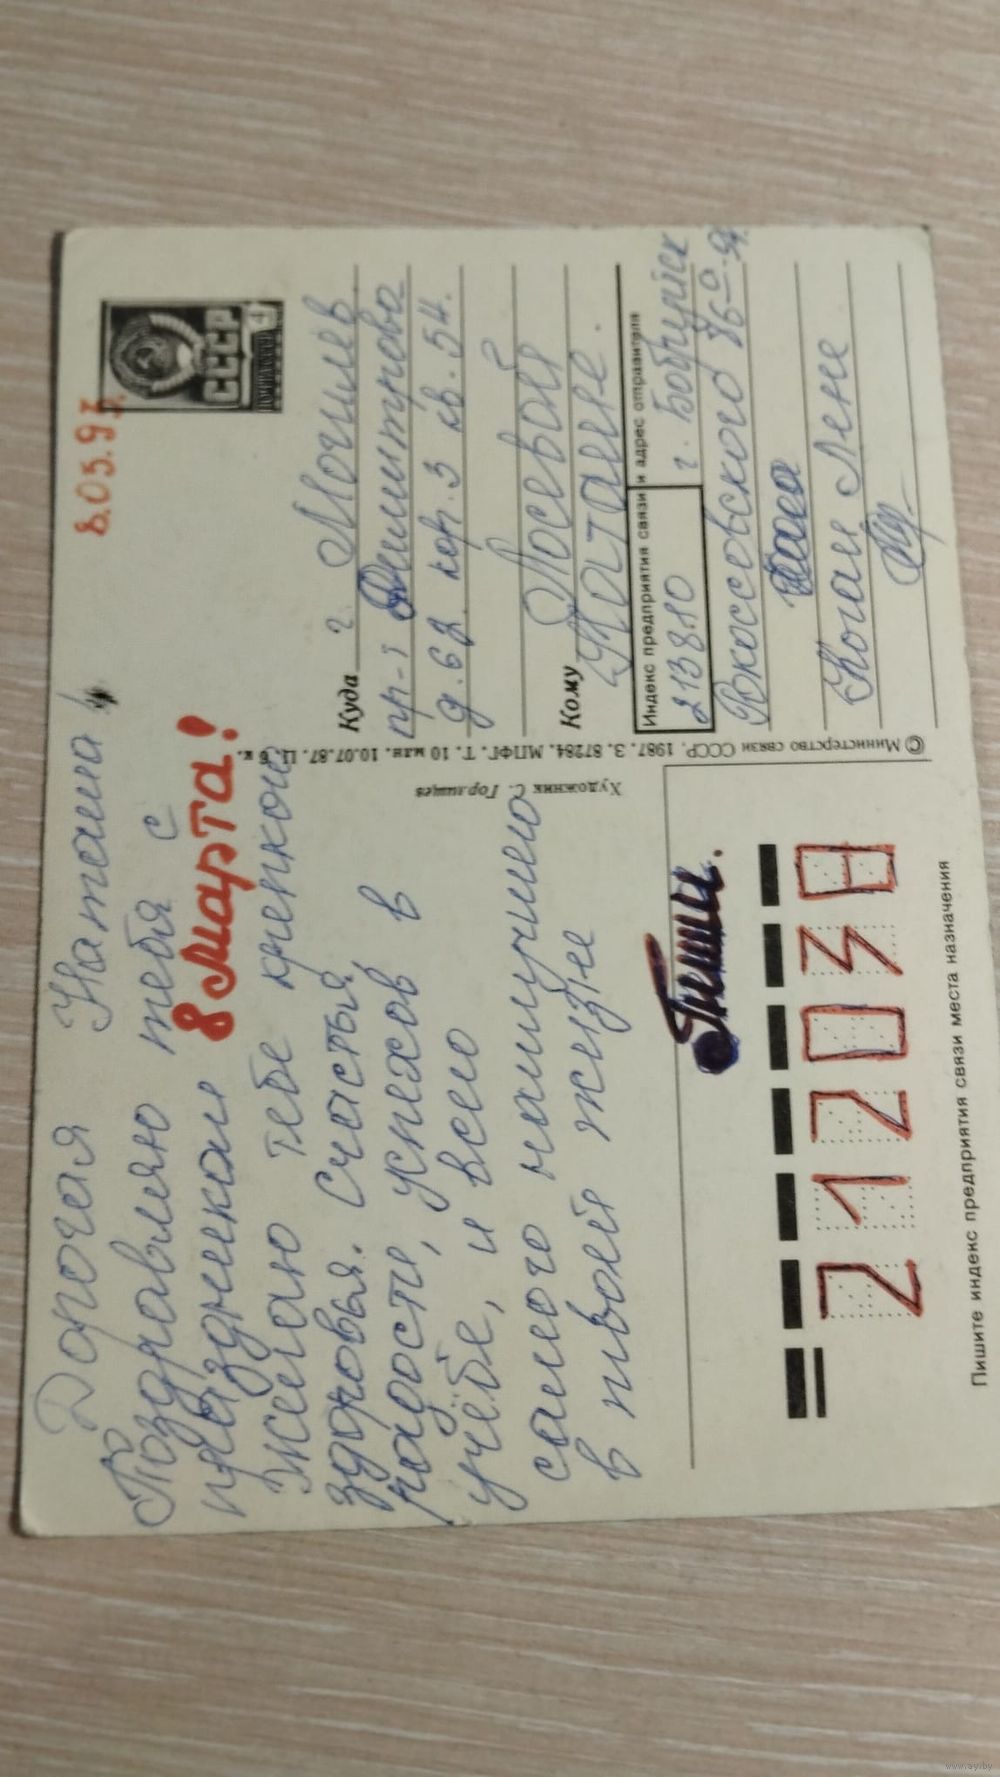 Дорогая Наташа!
Поздравляю тебя с
праздником 8 марта!
Желаю тебе крепкого
здоровья. счастья
радости, успехов в
учёбе, и всего
самого наилучшего
в твоей жизне
Пиши.
212030
Пишите индекс предприятия связи места назначения
Художник С. Горлищев
© Министерство связи СССР. 1987. З. 87284. МПФГ. Т. 10 млн. 10.07.87. Ц. 6 к.
8.03.93
СССР
4
Куда г. Могилев
пр-т Димитрова
д. 62. кор. 3 кв. 54.
Кому Лосевой
Наташе.
Индекс предприятия связи и адрес отправителя
213810 г. Бобруйск
Рокоссовского 76
Коган Лене
www.ay.by